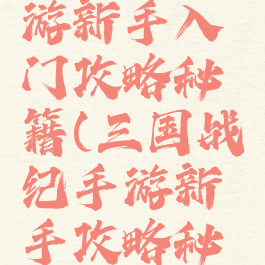 游新手入
门攻略秘
籍(三国战
纪手游新
手攻略秘